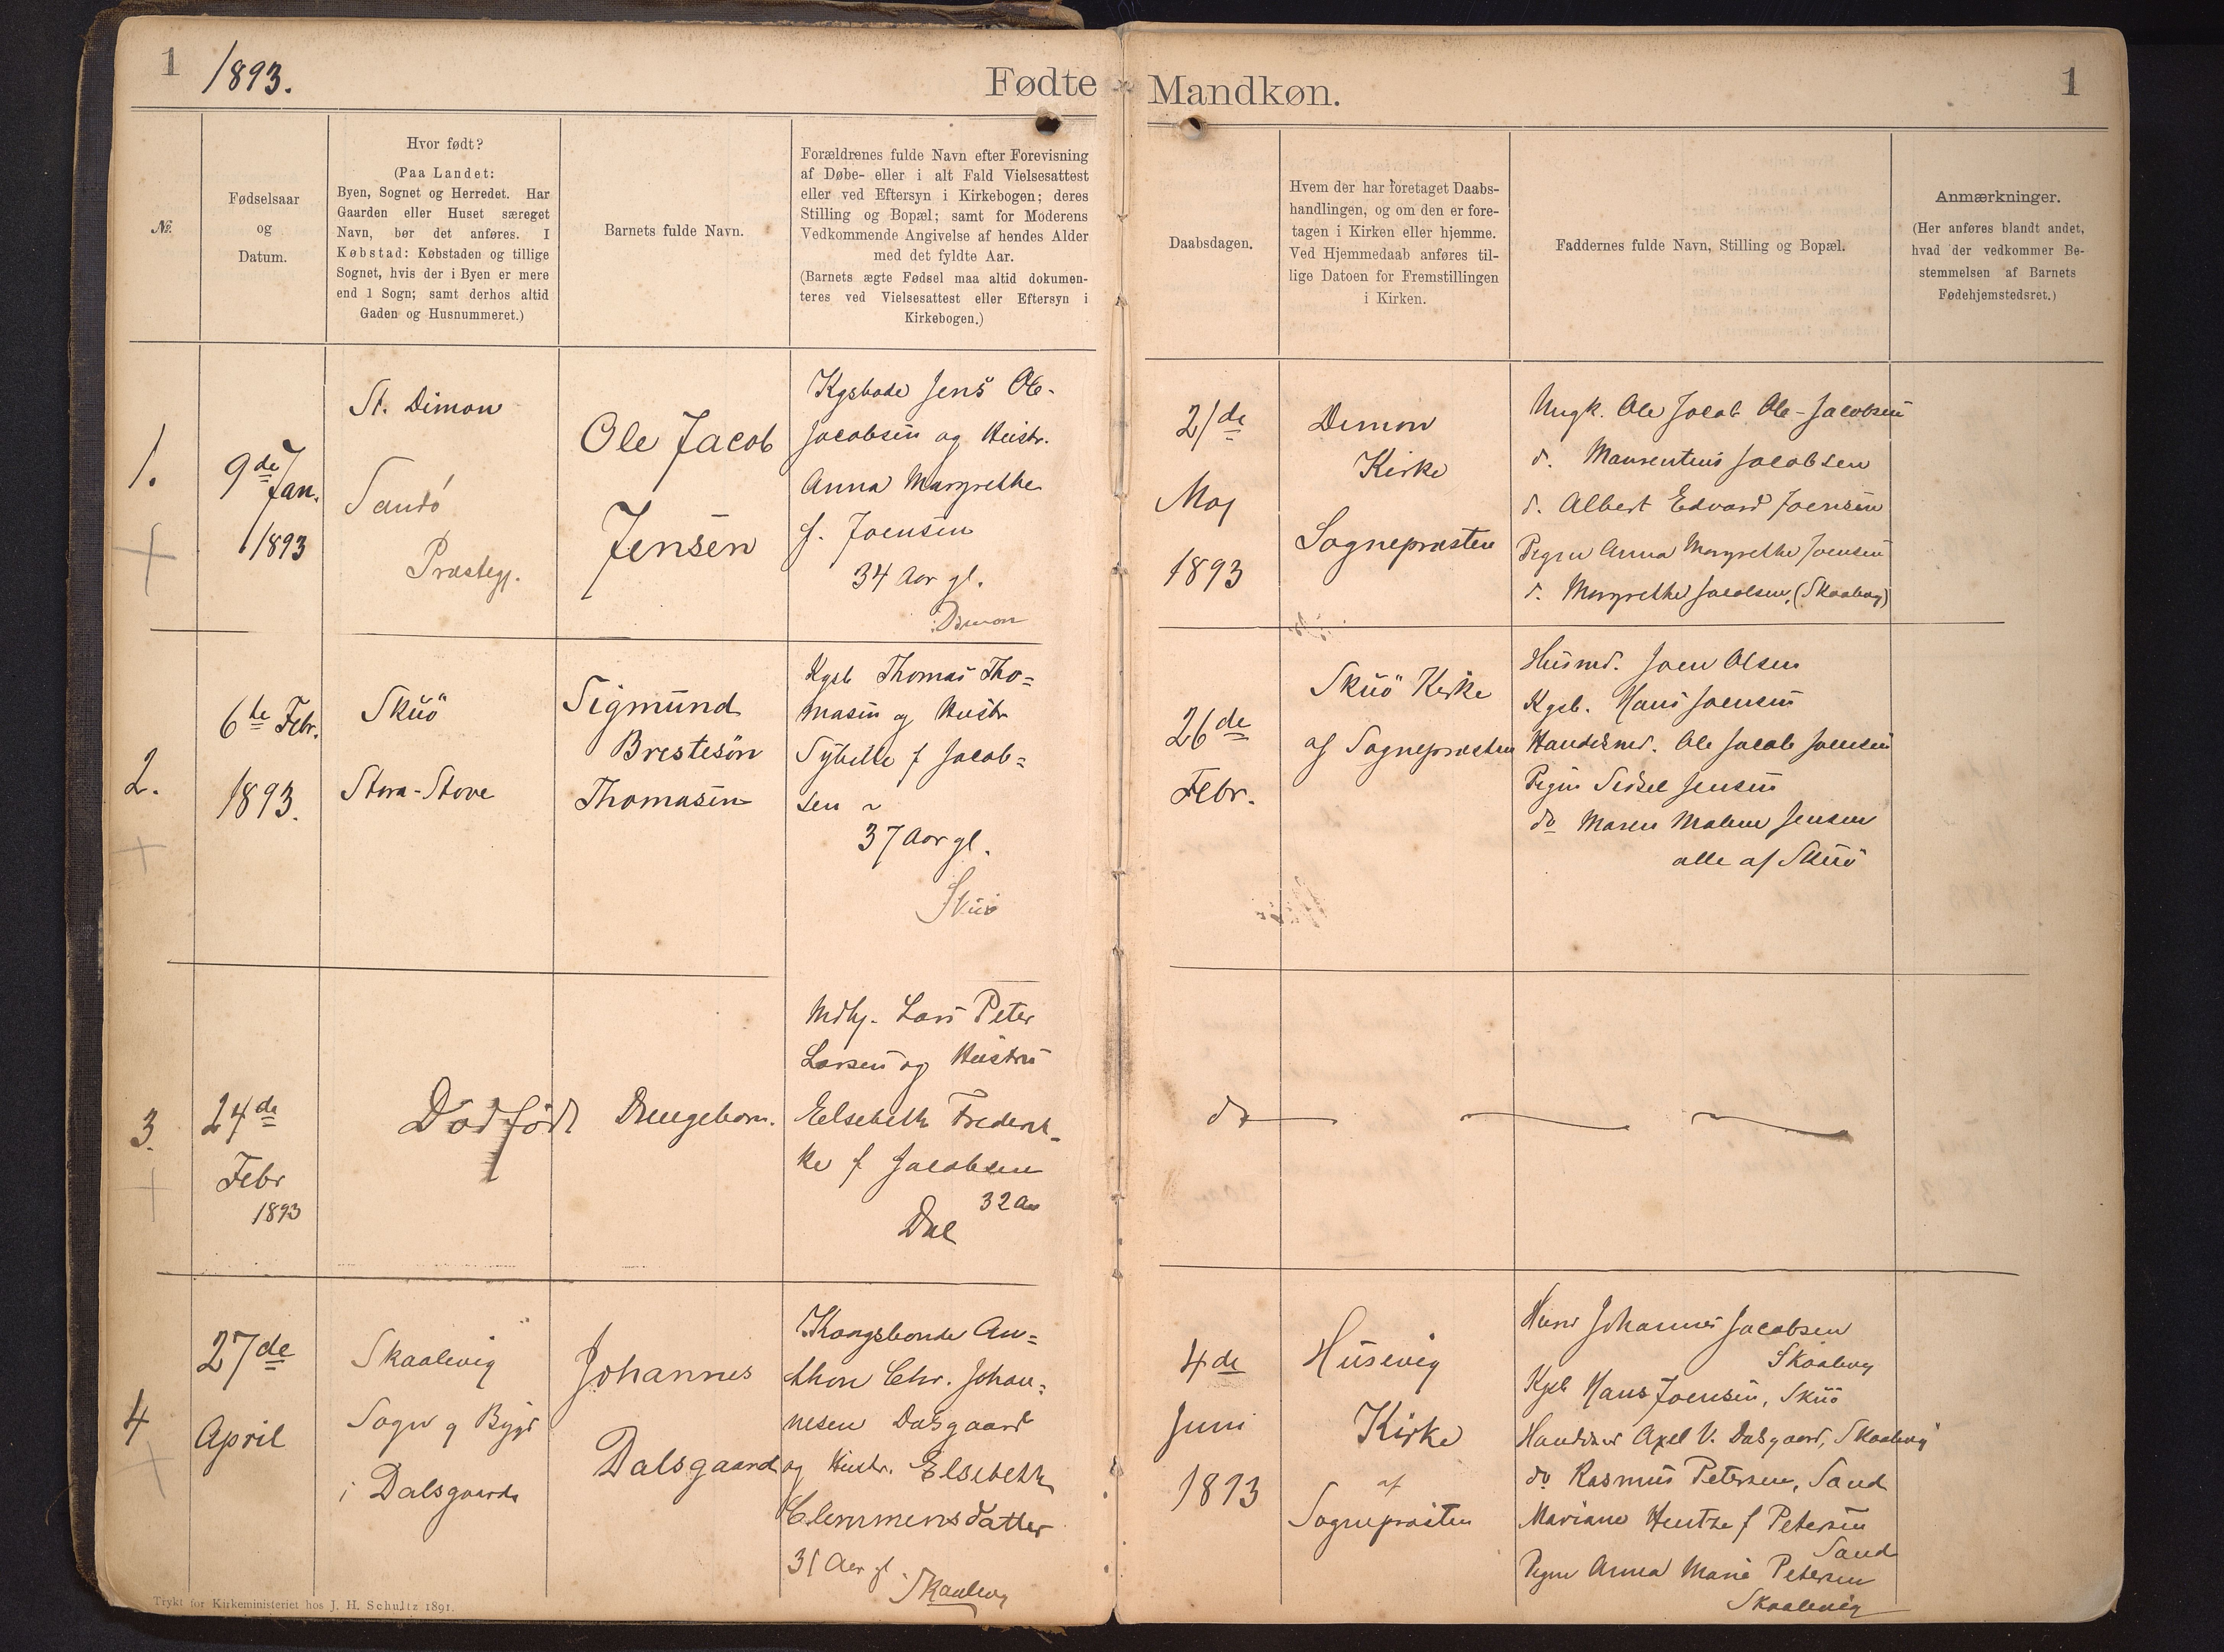 1
1893.
Fødte
Mandkøn.
1
№.
Fødselsaar
og
Datum.
Hvor født?
(Paa Landet:
Byen, Sognet og Herredet. Har
Gaarden eller Huset særeget
Navn, bør det anføres. I
Købstad: Købstaden og tillige
Sognet, hvis der i Byen er mere
end 1 Sogn; samt derhos altid
Gaden og Husnummeret.)
Barnets fulde Navn.
Forældrenes fulde Navn efter Forevisning
af Døbe- eller i alt Fald Vielsesattest
eller ved Eftersyn i Kirkebogen; deres
Stilling og Bopæl; samt for Moderens
Vedkommende Angivelse af hendes Alder
med det fyldte Aar.
(Barnets ægte Fødsel maa altid dokumen-
teres ved Vielsesattest eller Eftersyn i
Kirkebogen.)
Daabsdagen.
Hvem der har foretaget Daabs-
handlingen, og om den er fore-
tagen i Kirken eller hjemme.
Ved Hjemmedaab anføres til-
lige Datoen for Fremstillingen
i Kirken.
Faddernes fulde Navn, Stilling og Bopæl.
Anmærkninger.
(Her anføres blandt andet,
hvad der vedkommer Be-
stemmelsen af Barnets
Fødehjemstedsret.)
1.
9de Jan.
1893
St. Dimon
Sandø
Præstegj.
Ole Jacob
Jensen
Kgsbode Jens Ole-
Jacobsen og Hustr.
Anna Margrethe
f. Joensen
34 Aar gl.
Dimon
21de
Maj
1893
Dimon
Kirke
Sognepræsten
Ungk. Ole Jacob Ole-Jacobsen
d. Maurentius Jacobsen
d. Albert Edvard Joensen
Pigen Anna Margrethe Joensen
d. Margrethe Jacobsen, (Skaalvig)
2.
6te Febr.
1893.
Skuö
Stora-Stove
Sigmund
Brestesön
Thomasen
Kgsb Thomas Tho=
masen og Hustr
Sybille f Jacob=
sen
37 Aar gl.
Skuö
26de
Febr.
Skuö Kirke
af Sognepræsten
Husmd. Joen Olsen
Kgsb. Hans Joensen
Handelsmd. Ole Jacob Joensen
Pigen Sidsel Jensen
do Maren Malene Jensen
alle af Skuö
3.
24de
Febr
1893
Dødfödt
Drengebarn.
Lars Peter
Larsen og Hustru
Elsebeth Frederik-
ke f Jacobsen
32 Aar
Dal
do
4
27de
April
Skaalevig
Sogn og Bygd
i Dalsgaard
Johannes
Dalsgaard
Kongsbonde An=
thon Chr. Johan=
nesen Dalsgaard
og Hustr. Elsebeth
Clemmensdatter
31 Aar gl.
Skaalevig
4de
Juni
1893
Husevig
Kirke
af
Sognepræsten
Johannes Jacobsen
Skaalevig
Kgsb Hans Joensen, Skuö
Axel V. Dalsgaard, Skaalevig
do Rasmus Petersen, Sand
Mariane Hentze f Petersen
Sand
Pigen Anna Marie Petersen
Skaalevig
Trykt for Kirkeministeriet hos J. H. Schultz 1891.